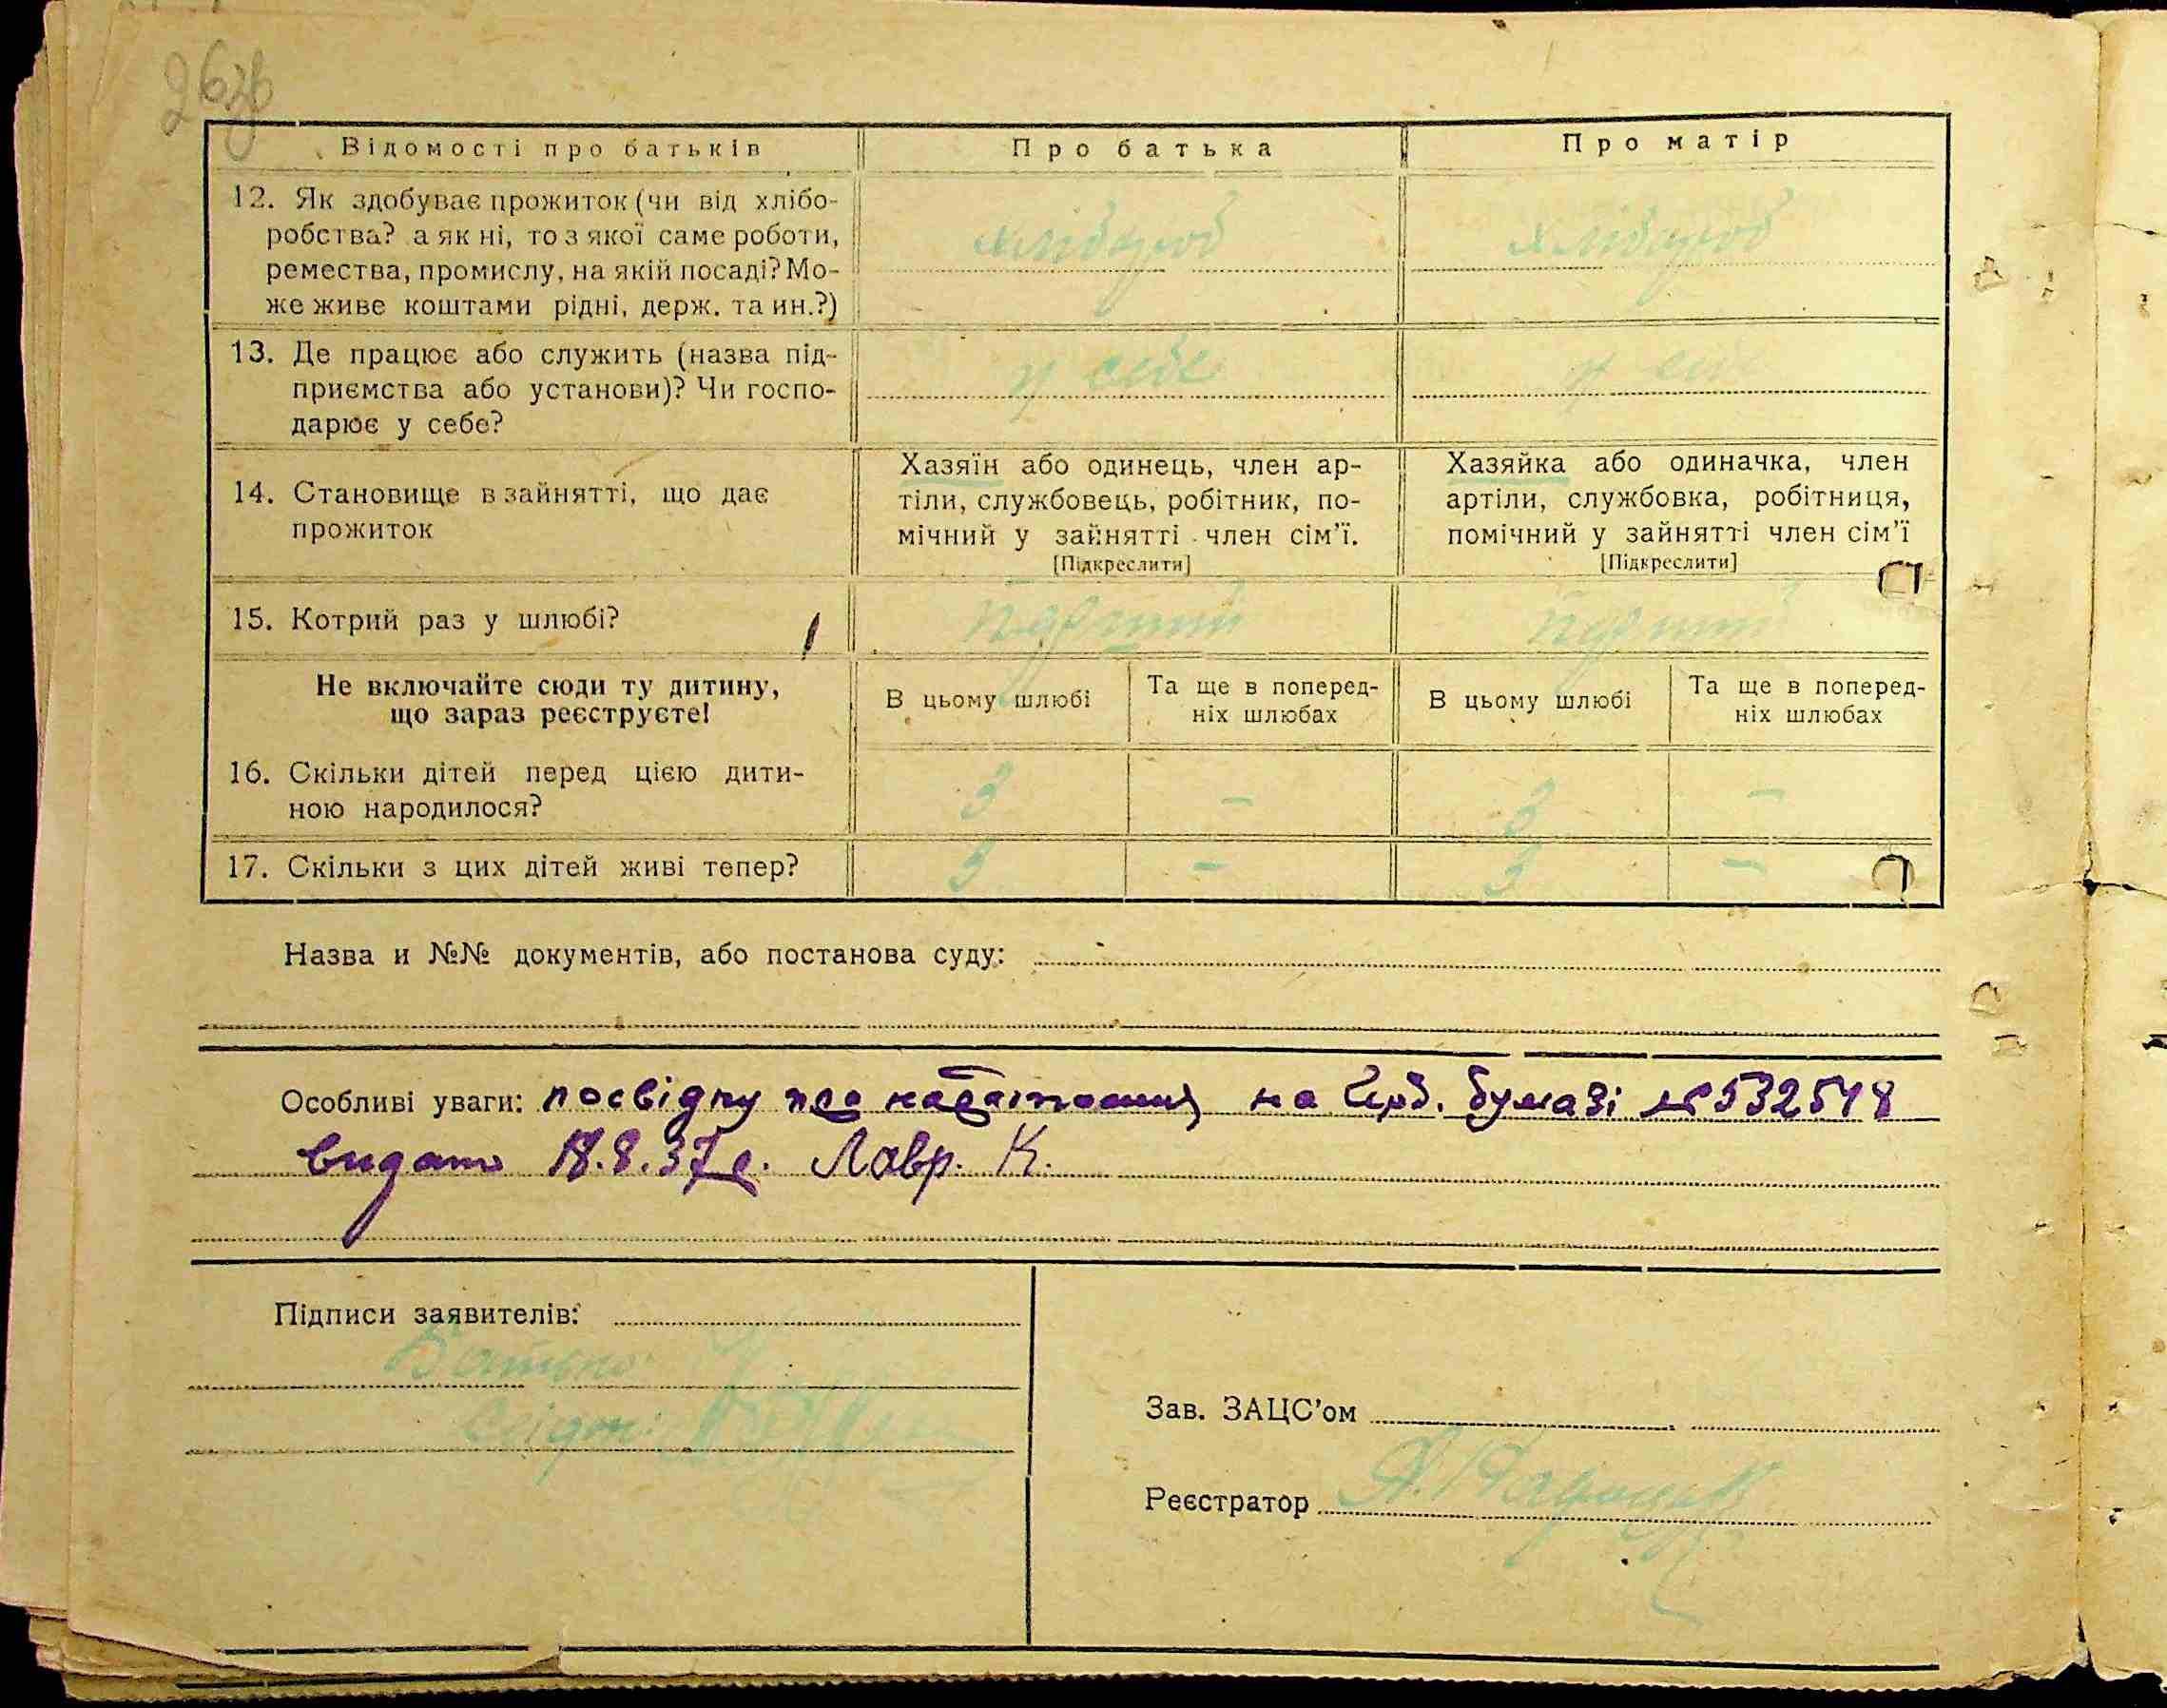 26зв
Відомості про батьків
Про батька
Про матір
12. Як здобуває прожиток (чи від хлібо-
робства? а як ні, то з якої саме роботи,
ремества, промислу, на якій посаді? Мо-
же живе коштами рідні, держ. та ин.?)
хлібороб
хлібороб
13. Де працює або служить (назва під-
приємства або установи)? Чи госпо-
дарює у себе?
у себе
у себе
14. Становище в зайнятті, що дає
прожиток
Хазяїн або одинець, член ар-
тіли, службовець, робітник, по-
мічний у зайнятті член сім’ї.
[Підкреслити]
Хазяйка або одиначка, член
артіли, службовка, робітниця,
помічний у зайнятті член сім’ї
[Підкреслити]
15. Котрий раз у шлюбі?
1
Не включайте сюди ту дитину,
що зараз реєструєте!
В цьому шлюбі
Та ще в поперед-
ніх шлюбах
В цьому шлюбі
Та ще в поперед-
ніх шлюбах
16. Скільки дітей перед цією дити-
ною народилося?
3 – 3 –
17. Скільки з цих дітей живі тепер?
3 – 3 –
Назва и №№ документів, або постанова суду:
Особливі уваги: посвідку про на Герб. бумазі № 532548
видано 18.8.37 р. Лавр. К.
Підписи заявителів:
Батько:
Свідки:
Зав. ЗАЦС’ом
Реєстратор